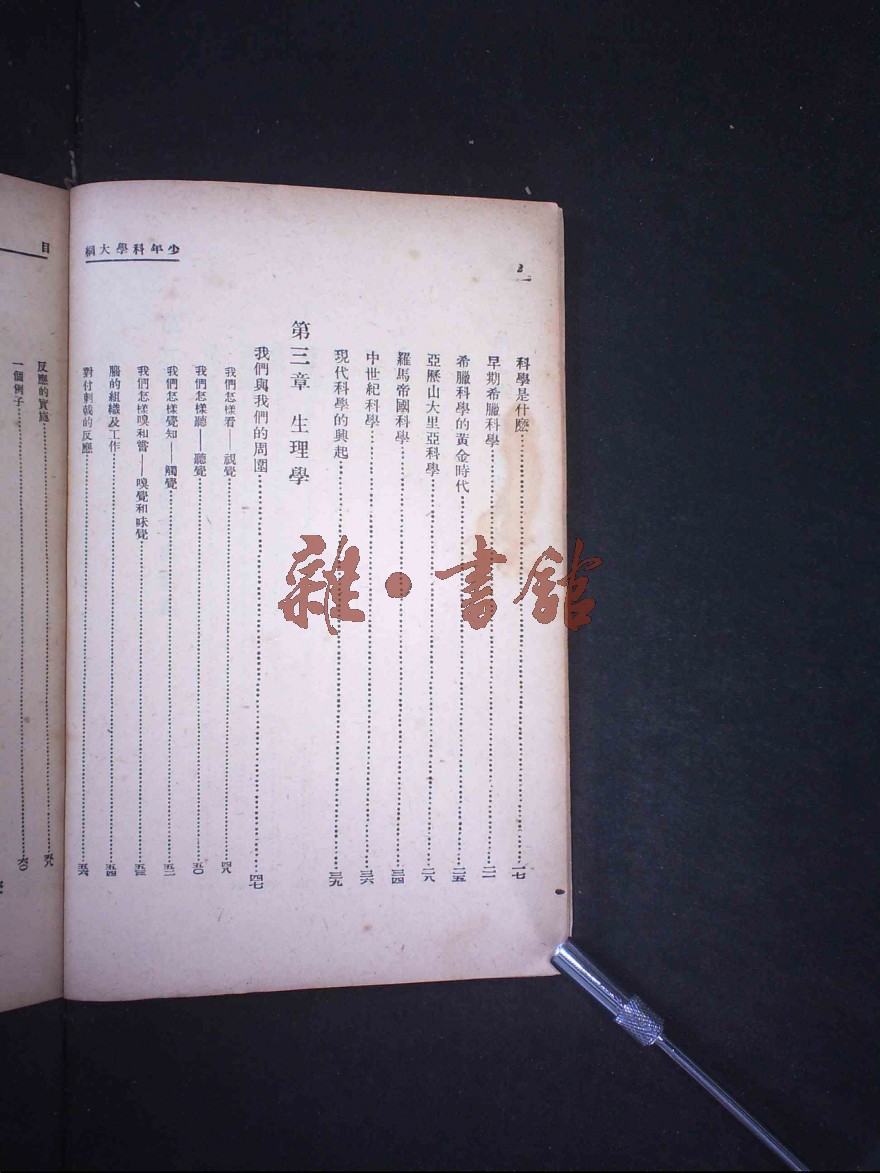 少年科學大綱
2
科學是什麼……一七
早期希臘科學……二一
希臘科學的黃金時代……二五
亞歷山大里亞科學……二八
羅馬帝國科學……三四
中世紀科學……三六
現代科學的興起……三九
第三章 生理學
我們與我們的周圍……四七
我們怎樣看——視覺……四八
我們怎樣聽——聽覺……五〇
我們怎樣覺知——觸覺……五二
我們怎樣嗅和嘗——嗅覺和味覺……五三
腦的組織及工作……五四
對付刺戟的反應……五六
目
反應的實施……五八
一個例子……六〇
雜·書館